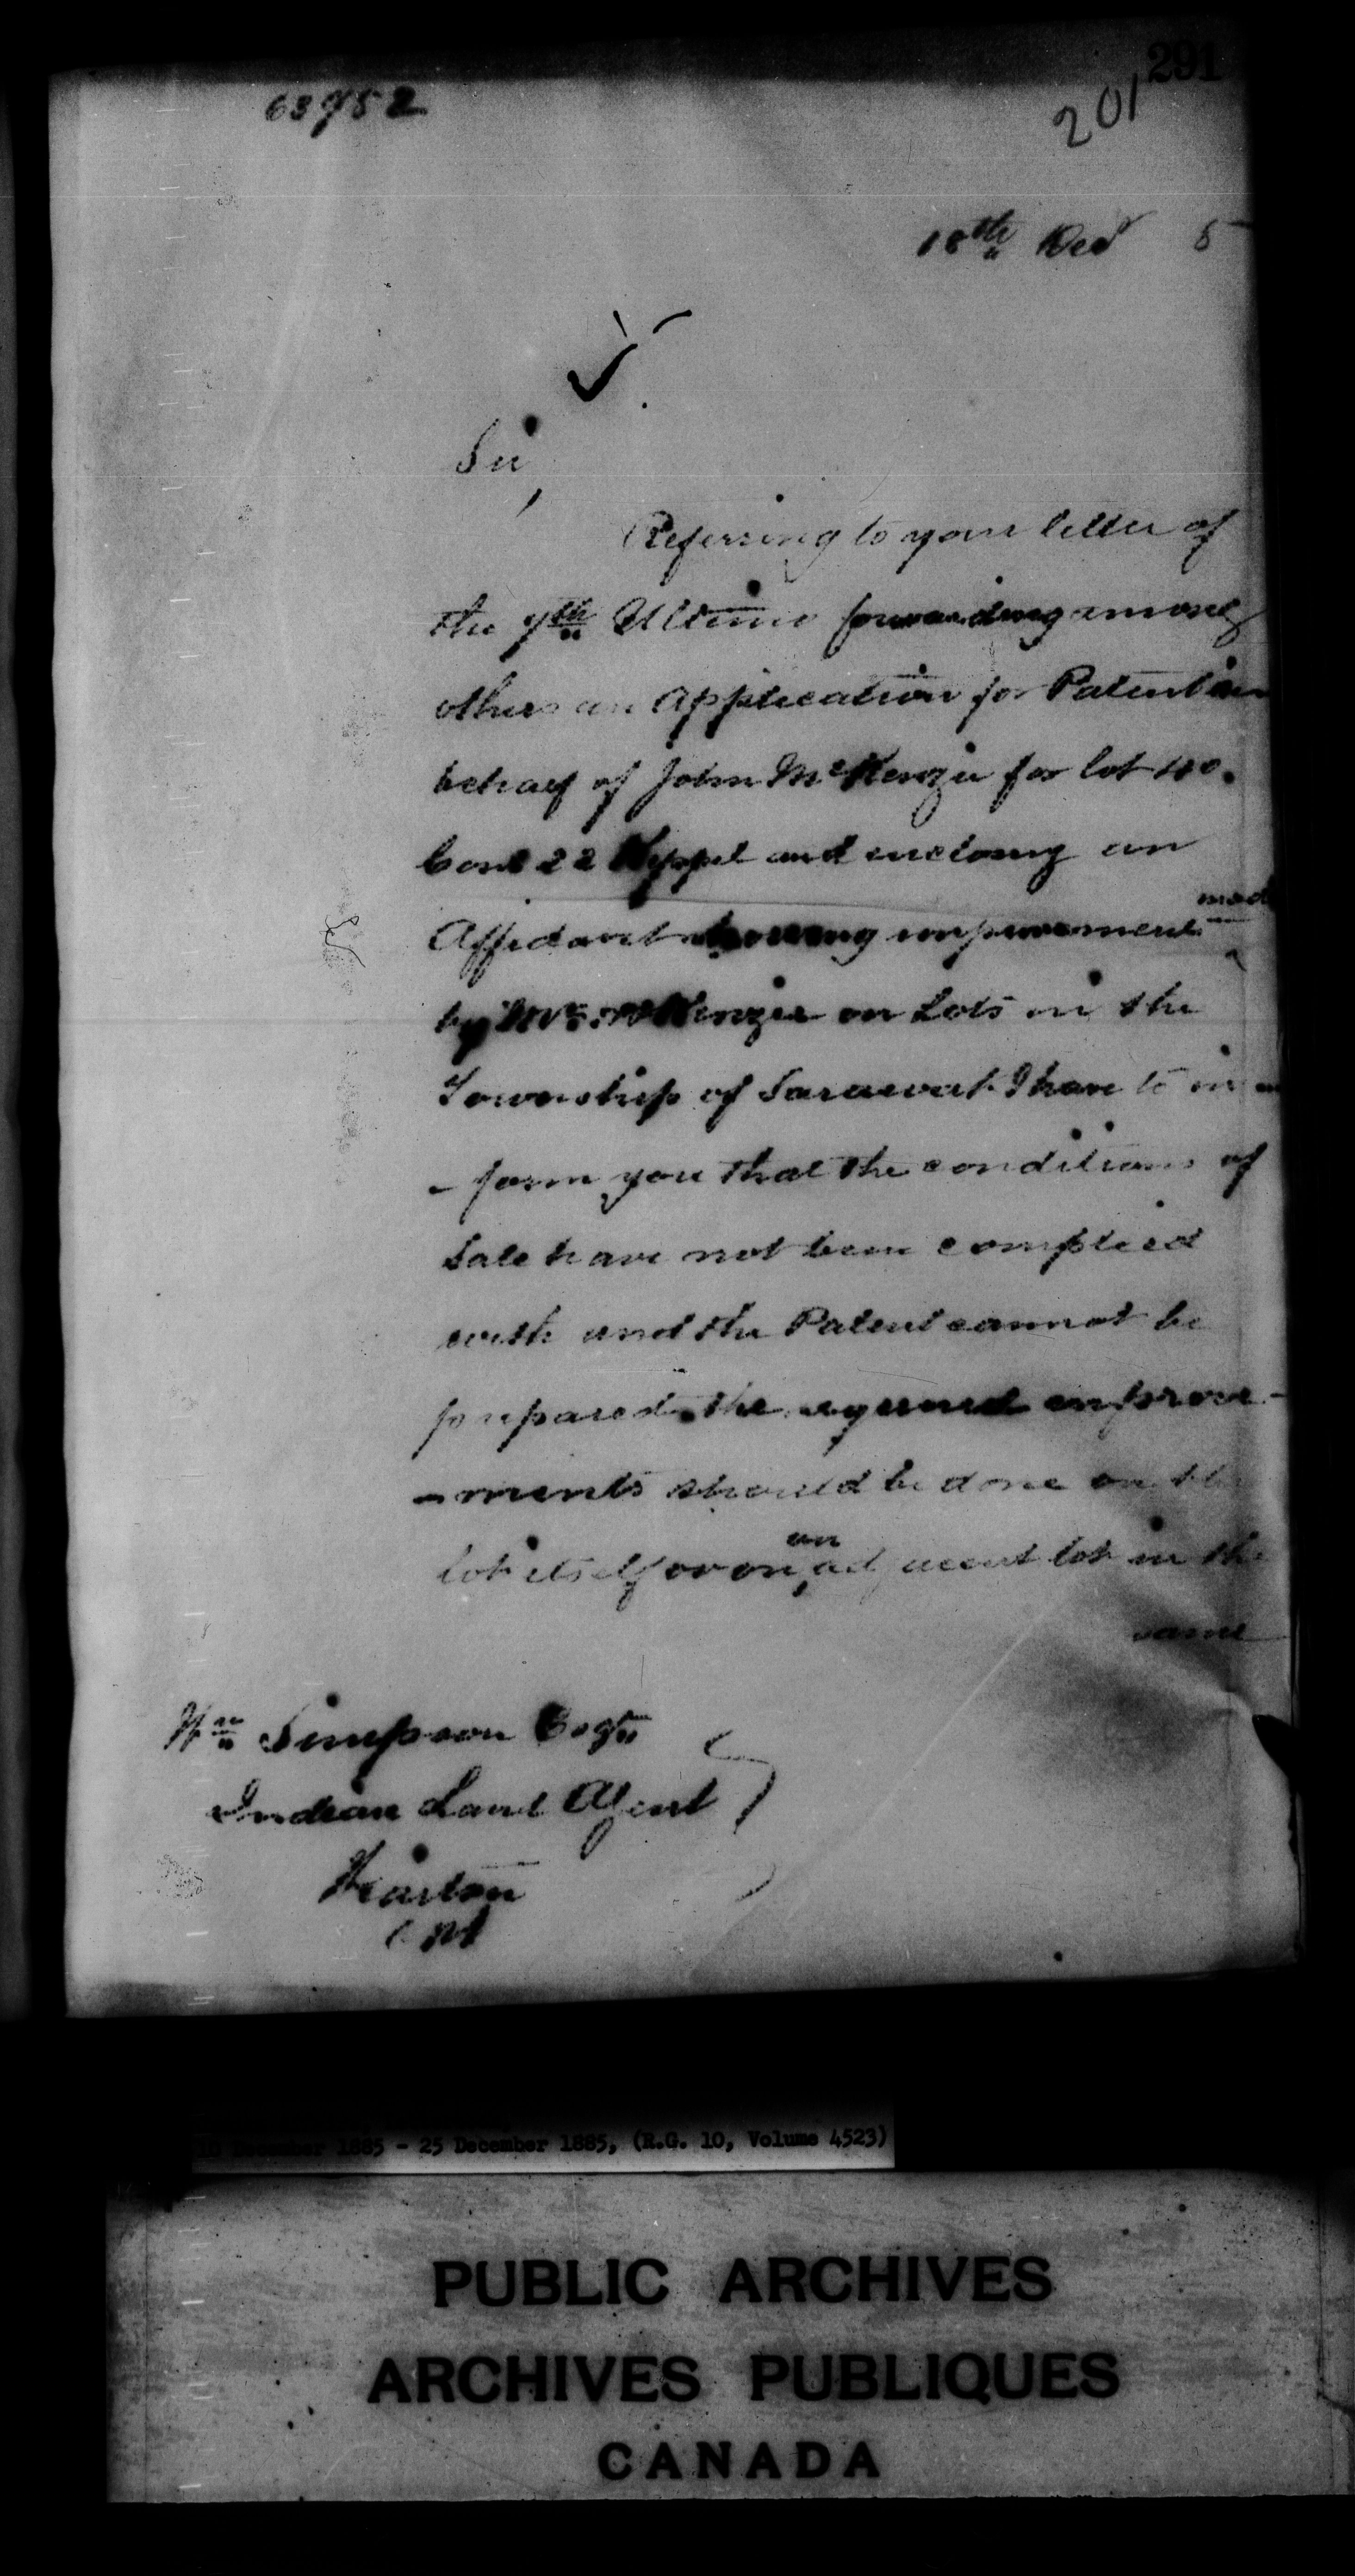 291
201
63752
18th Decr 5
Sir,
Referring to your letter of
the 7th Ultimo forwarding among
others an Application for Patent in
behalf of John McKenzie for lot 40.
Con 22 Keppel and enclosing an
Affidavit showing improvements made
by Mr. McKenzie on Lots in the
Township of Sarawak I have to in
- form you that the conditions of
Sale have not been complied
with and the Patent cannot be
prepared. the required improve-
-ments should be done on the
lot itself or on an adjacent lot in the
same
Wm Simpson Esqre
Indian Land Agent
Wiarton
Ont
10 December 1885 - 25 December 1885, (R.G. 10, Volume 4523)
PUBLIC ARCHIVES
ARCHIVES PUBLIQUES
CANADA